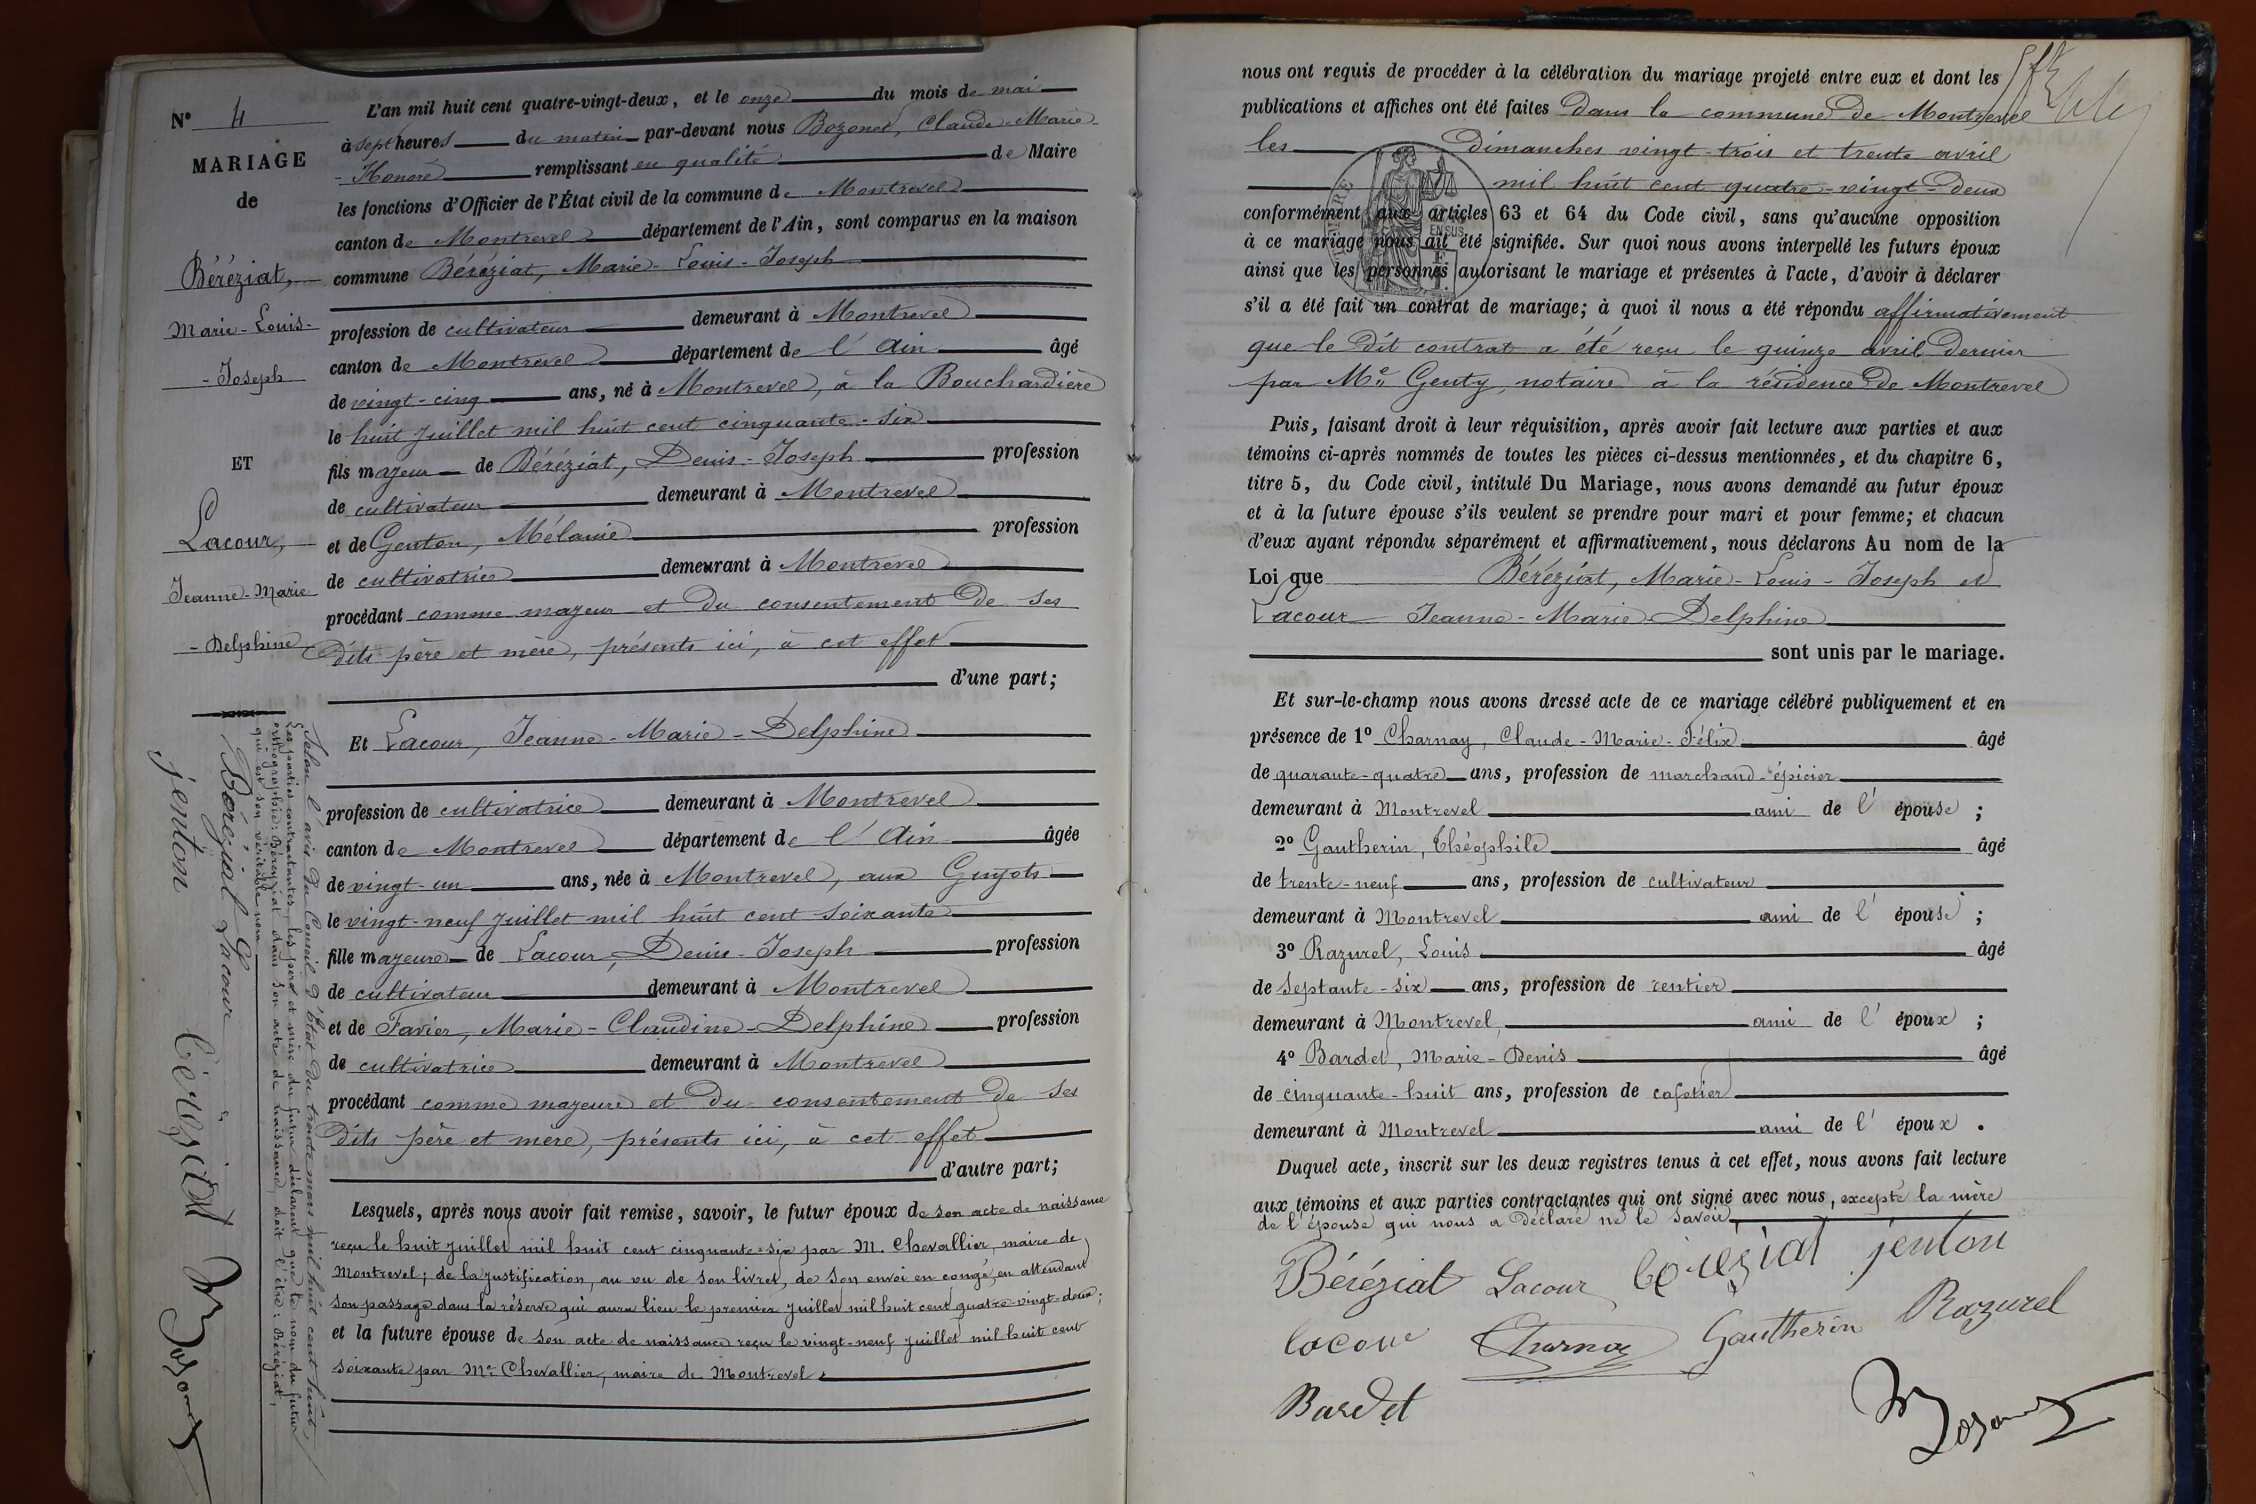 N° 4
MARIAGE
de
Béréziat,
Marie-Louis-
-Joseph
ET
Lacour,
Jeanne-Marie
-Delphine
L'an mil huit cent quatre-vingt-deux, et le onze du mois de mai
à sept heures du matin par-devant nous Bozonet, Claude-Marie-
-Honoré remplissant en qualité de Maire
les fonctions d'Officier de l'État civil de la commune de Montrevel
canton de Montrevel département de l'Ain, sont comparus en la maison
commune Béréziat, Marie-Louis-Joseph
profession de cultivateur demeurant à Montrevel
canton de Montrevel département de l'Ain âgé
de vingt-cinq ans, né à Montrevel, à la Bouchardière
le huit Juillet mil huit cent cinquante-six
fils majeur de Béréziat, Denis-Joseph profession
de cultivateur demeurant à Montrevel
et de Genton, Mélanie profession
de cultivatrice demeurant à Montrevel
procédant comme majeur et du consentement de ses
dits père et mère, présents ici, à cet effet
d'une part;
Et Lacour, Jeanne-Marie-Delphine
profession de cultivatrice demeurant à Montrevel
canton de Montrevel département de l'Ain âgée
de vingt-un ans, née à Montrevel, aux Guyots
le vingt-neuf Juillet mil huit cent soixante
fille majeure de Lacour, Denis-Joseph profession
de cultivateur demeurant à Montrevel
et de Favier, Marie-Claudine-Delphine profession
de cultivatrice demeurant à Montrevel
procédant comme majeure et du consentement de ses
dits père et mère, présents ici, à cet effet
d'autre part;
Lesquels, après nous avoir fait remise, savoir, le futur époux de son acte de naissance
reçu le huit Juillet mil huit cent cinquante-six par M. Chevallier, maire de
Montrevel; de la justification, au vu de son livret, de son envoi en congé, en attendant
son passage dans la réserve qui aura lieu le premier Juillet mil huit cent quatre-vingt-deux;
et la future épouse de son acte de naissance reçu le vingt-neuf Juillet mil huit cent
soixante par Mr Chevallier, maire de Montrevel,
Selon l'avis du Conseil d'État du trente mars mil huit cent huit,
Les parties contractantes, les père et mère du futur déclarent que le nom du futur
orthographié: Béreyziat dans son acte de naissance, doit l'être: Béréziat,
qui est son véritable nom.
Béréziat Lacour
jenton Béréziat Bozonet
nous ont requis de procéder à la célébration du mariage projeté entre eux et dont les
publications et affiches ont été faites dans la commune de Montrevel
les dimanches vingt-trois et trente avril
mil huit cent quatre-vingt-deux
conformément aux articles 63 et 64 du Code civil, sans qu'aucune opposition
à ce mariage nous ait été signifiée. Sur quoi nous avons interpellé les futurs époux
ainsi que les personnes autorisant le mariage et présentes à l'acte, d'avoir à déclarer
s'il a été fait un contrat de mariage; à quoi il nous a été répondu affirmativement
que le dit contrat a été reçu le quinze avril dernier
par Me Genty, notaire à la résidence de Montrevel
Puis, faisant droit à leur réquisition, après avoir fait lecture aux parties et aux
témoins ci-après nommés de toutes les pièces ci-dessus mentionnées, et du chapitre 6,
titre 5, du Code civil, intitulé Du Mariage, nous avons demandé au futur époux
et à la future épouse s'ils veulent se prendre pour mari et pour femme; et chacun
d'eux ayant répondu séparément et affirmativement, nous déclarons Au nom de la
Loi que Béréziat, Marie-Louis-Joseph et
Lacour Jeanne-Marie-Delphine
sont unis par le mariage.
Et sur-le-champ nous avons dressé acte de ce mariage célébré publiquement et en
présence de 1° Charnay, Claude-Marie-Félix âgé
de quarante-quatre ans, profession de marchand-épicier
demeurant à Montrevel ami de l'épouse;
2° Gautherin, Théophile âgé
de trente-neuf ans, profession de cultivateur
demeurant à Montrevel ami de l'épouse;
3° Razurel, Louis âgé
de septante-six ans, profession de rentier
demeurant à Montrevel, ami de l'époux;
4° Bardet, Marie-Denis âgé
de cinquante-huit ans, profession de cafetier
demeurant à Montrevel ami de l'époux.
Duquel acte, inscrit sur les deux registres tenus à cet effet, nous avons fait lecture
aux témoins et aux parties contractantes qui ont signé avec nous, excepté la mère
de l'épouse qui nous a déclaré ne le savoir,
Béréziat Lacour Béréziat jenton
lacour Charnay Gautherin Razurel
Bardet Bozonet